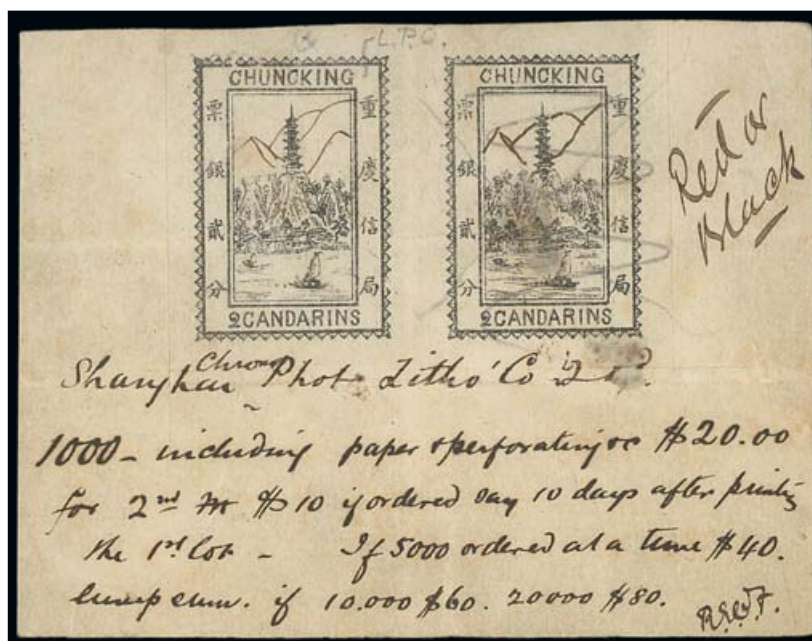 L.P.O.
CHUNCKING
票銀貳分
重慶信局
2 CANDARINS
CHUNCKING
票銀貳分
重慶信局
2 CANDARINS
Red or
Black
Shanghai Chromo Phot Litho' Co
1000 - including paper & perforating &c $20.00
for 2nd $10 if ordered say 10 days after printing
the 1st lot - If 5000 ordered at a time $40.
lump sum. if 10.000 $60. 20000 $80.